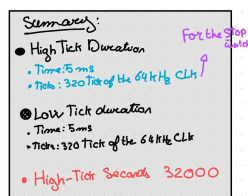 Summary:
For the Stop watch
• High Tick Duration
• Time: 5 ms
• Ticks: 320 Tick of the 64 kHz Clk
• Low Tick duration
• Time: 5ms
• Ticks: 320 Tick of the 64 kHz Clk
• High-Tick Seconds 32000